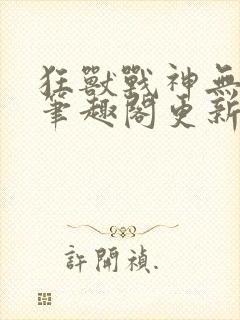 狂獸戰神無
筆趣閣更新
許開禎.